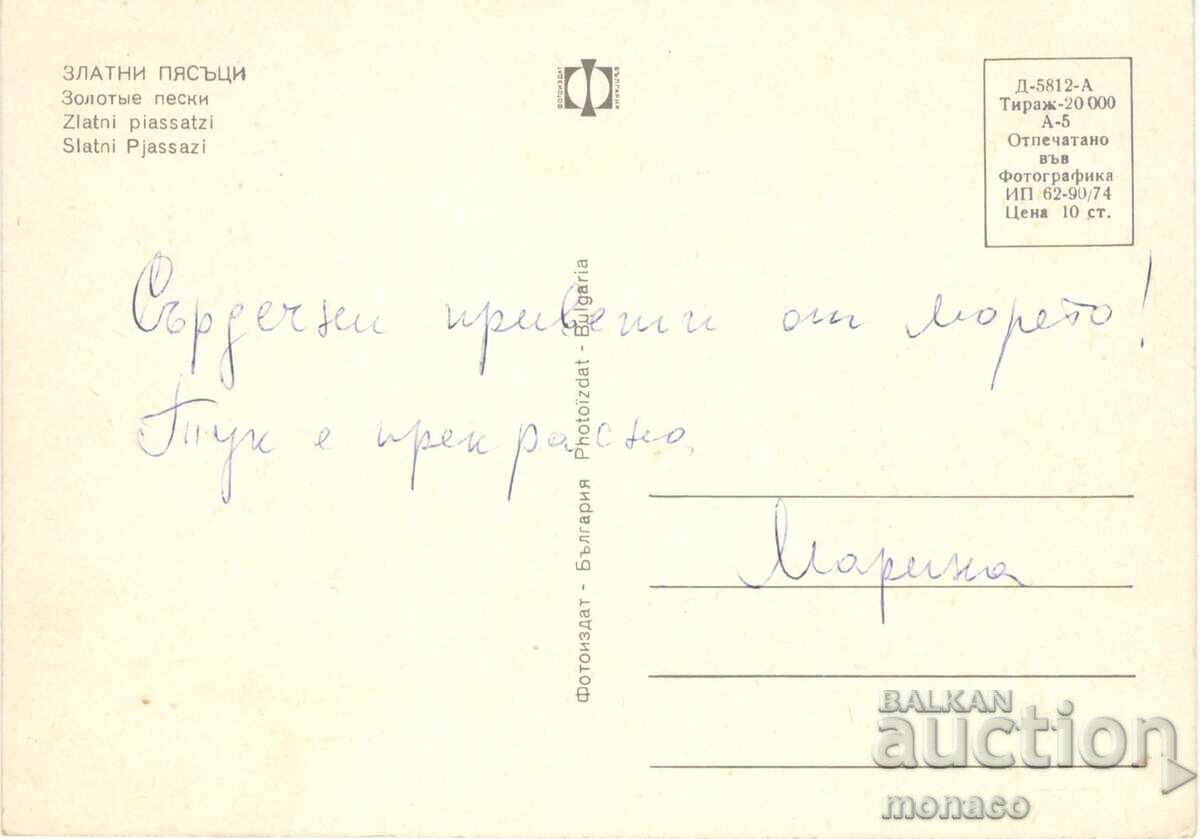 ЗЛАТНИ ПЯСЪЦИ
Золотые пески
Zlatni piassatzi
Slatni Pjassazi
ФОТОИЗДАТ
БЪЛГАРИЯ
Д-5812-А
Тираж-20 000
А-5
Отпечатано
във
Фотографика
ИП 62-90/74
Цена 10 ст.
Сърдечни привети от морето!
Тук е прекрасно.
Марина
Фотоиздат - България Photoïzdat - Bulgaria
BALKAN
auction
monaco